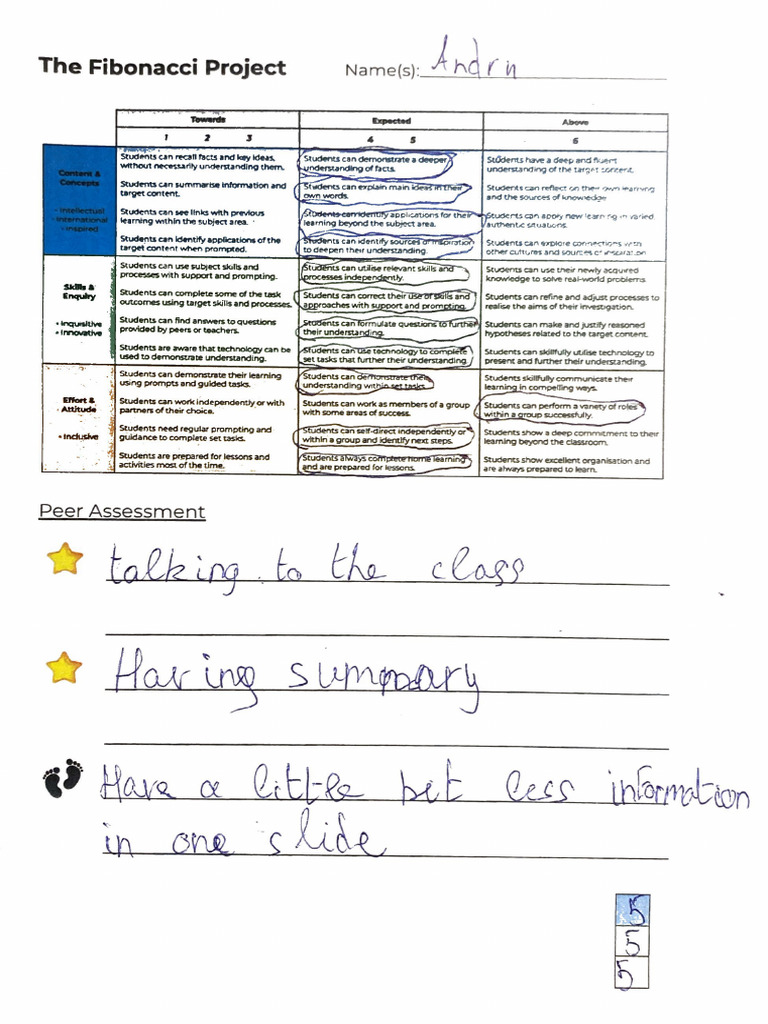 The Fibonacci Project
Name(s):
Towards
Expected
Above
1 2 3
4 5
6
Content &
Concepts
- Intellectual
- International
- Inspired
Students can recall facts and key ideas,
without necessarily understanding them.
Students can demonstrate a deeper
understanding of facts.
Students have a deep and fluent
understanding of the target content.
Students can summarise information and
target content.
Students can explain main ideas in their
own words.
Students can reflect on their own learning
and the sources of knowledge
Students can see links with previous
learning within the subject area.
Students can identify applications for their
learning beyond the subject area.
Students can apply new learning in varied
authentic situations.
Students can identify applications of the
target content when prompted.
Students can identify sources of inspiration
to deepen their understanding.
Students can explore connections with
other cultures and sources of inspiration
Skills &
Enquiry
• Inquisitive
• Innovative
Students can use subject skills and
processes with support and prompting.
Students can utilise relevant skills and
processes independently.
Students can use their newly acquired
knowledge to solve real-world problems.
Students can complete some of the task
outcomes using target skills and processes.
Students can correct their use of skills and
approaches with support and prompting.
Students can refine and adjust processes to
realise the aims of their investigation.
Students can find answers to questions
provided by peers or teachers.
Students can formulate questions to further
their understanding.
Students can make and justify reasoned
hypotheses related to the target content.
Students are aware that technology can be
used to demonstrate understanding.
Students can use technology to complete
set tasks that further their understanding.
Students can skillfully utilise technology to
present and further their understanding.
Effort &
Attitude
• Inclusive
Students can demonstrate their learning
using prompts and guided tasks.
Students can demonstrate their
understanding within set tasks.
Students skillfully communicate their
learning in compelling ways.
Students can work independently or with
partners of their choice.
Students can work as members of a group
with some areas of success.
Students can perform a variety of roles
within a group successfully.
Students need regular prompting and
guidance to complete set tasks.
Students can self-direct independently or
within a group and identify next steps.
Students show a deep commitment to their
learning beyond the classroom.
Students are prepared for lessons and
activities most of the time.
Students always complete home learning
and are prepared for lessons.
Students show excellent organisation and
are always prepared to learn.
Peer Assessment
talking to the class
Having summary
Have a little bit less information
in one slide
5
5
5